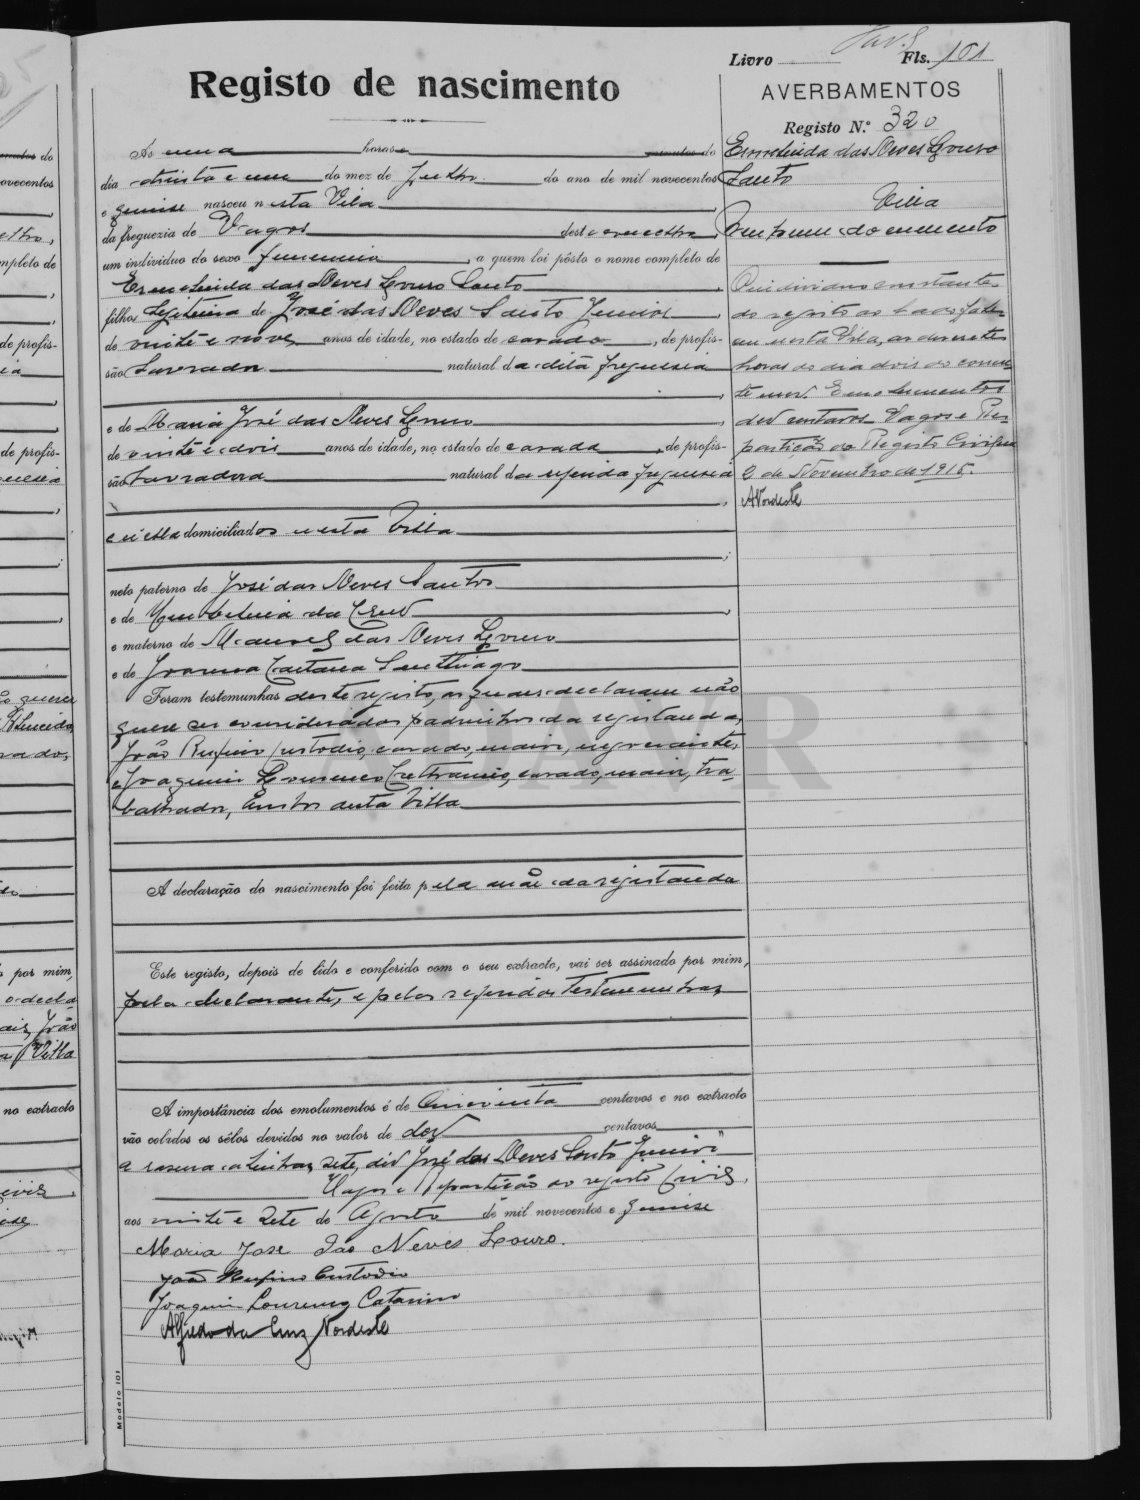 Livro Fls. 101
Registo de nascimento
AVERBAMENTOS
Registo N.º 320
Ás uma horas minutos do
dia trinta e um do mez de Julho do ano de mil novecentos
e quinse nasceu nesta Vila
da freguezia de Vagos deste concelho,
um individuo do sexo femenino, a quem foi pôsto o nome completo de
das Neves Louro Santo
filha legitima de José das Neves Santo Junior
de vinte e nove anos de idade, no estado de casado, de profis-
são Lavrador natural da dita freguesia
,
e de Maria José das Neves Louro
de vinte e dois anos de idade, no estado de casada, de profis-
são Lavradora natural da referida freguesia
,
e domiciliados nesta Villa
;
neto paterno de José das Neves Santo
e de da Cruz,
e materno de Manuel das Neves Louro
e de Joanna Caetana
Foram testemunhas deste registo, as quaes declaram não
querer ser considerados padrinhos da registanda,
João Rufino Custodio, casado, maior, negociante,
e Joaquim Lourenço Catharino, casado, maior, tra-
balhador, ambos desta Villa
A declaração do nascimento foi feita pela mãe da registanda
Este registo, depois de lido e conferido com o seu extracto, vai ser assinado por mim,
pela declarante, e pelas referidas testemunhas
A importância dos emolumentos é de cincoenta centavos e no extracto
vão colados os sêlos devidos no valor de dez centavos
A rasura a linhas sete, diz "José das Neves Santo Junior"
Vagos e Repartição do registo Civil,
aos vinte e sete de Agosto de mil novecentos e quinse
Maria Jose das Neves Louro.
João Rufino Custodio
Joaquim Lourenço Catarino
Alfredo da Cruz Nordeste
das Neves Louro
Santo
Villa
do nascimento
O individuo constante
do registo ao lado fale-
ceu nesta Vila, as
horas do dia dois do corren-
te mez. Emolumentos
dez centavos. Vagos e Re-
partição do Registo Civil,
2 de Novembro de 1915.
ANordeste
ADAVR
Modelo 101
minutos do
novecentos
completo de
de profis-
de profis-
por mim,
João
Villa
no extracto